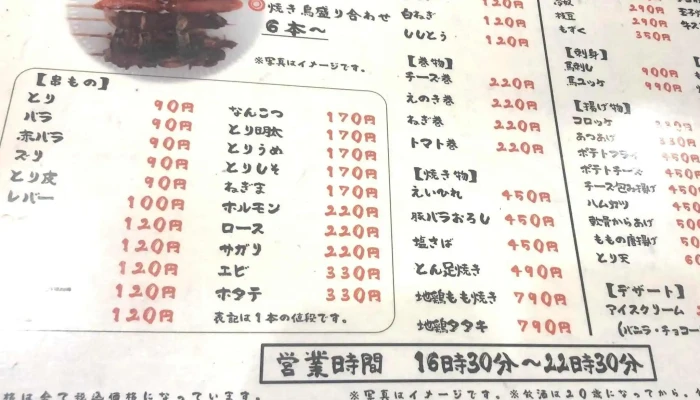 焼き鳥盛り合わせ
6本〜
※写真はイメージです。
【串もの】
とり 90円
バラ 90円
赤バラ 90円
ズリ 90円
とり皮 90円
レバー 100円
120円
120円
120円
120円
120円
なんこつ 170円
とり明太 170円
とりうめ 170円
とりしそ 170円
ねぎま 170円
ホルモン 220円
ロース 220円
サガリ 220円
エビ 330円
ホタテ 330円
表記は1本の値段です。
120円
白ねぎ 120円
ししとう 120円
【巻物】
チーズ巻 220円
えのき巻 220円
ねぎ巻 220円
トマト巻 220円
【焼き物】
えいひれ 450円
豚バラおろし 450円
塩さば 450円
とん足焼き 490円
地鶏もも焼き 790円
地鶏タタキ 790円
290円
枝豆 290円
もずく 350円
【刺身】
馬刺し 900円
馬ユッケ 990円
【揚げ物】
コロッケ
あつあげ 330円
ポテトフライ 450円
ポテトチーズ 450円
チーズ包み揚げ 450
ハムカツ 450
軟骨からあげ 50
ももの唐揚げ 50
とり天 60
【デザート】
アイスクリーム
(バニラ・チョコ
営業時間 16時30分〜22時30分
格は全て税込価格になっています。
※写真はイメージです。※飲酒は20歳になってから。